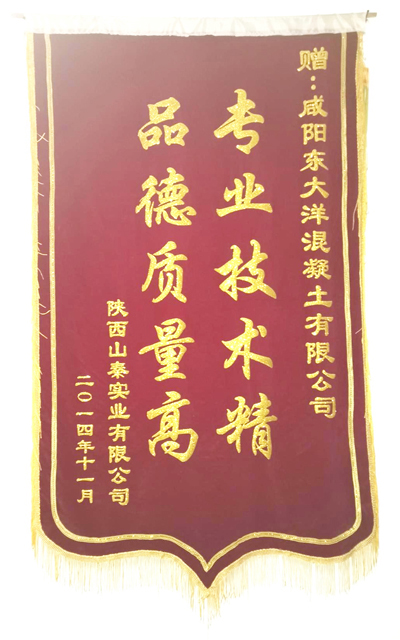 赠：咸阳东大洋混凝土有限公司
专业技术精
品德质量高
陕西山秦实业有限公司
二〇一四年十一月